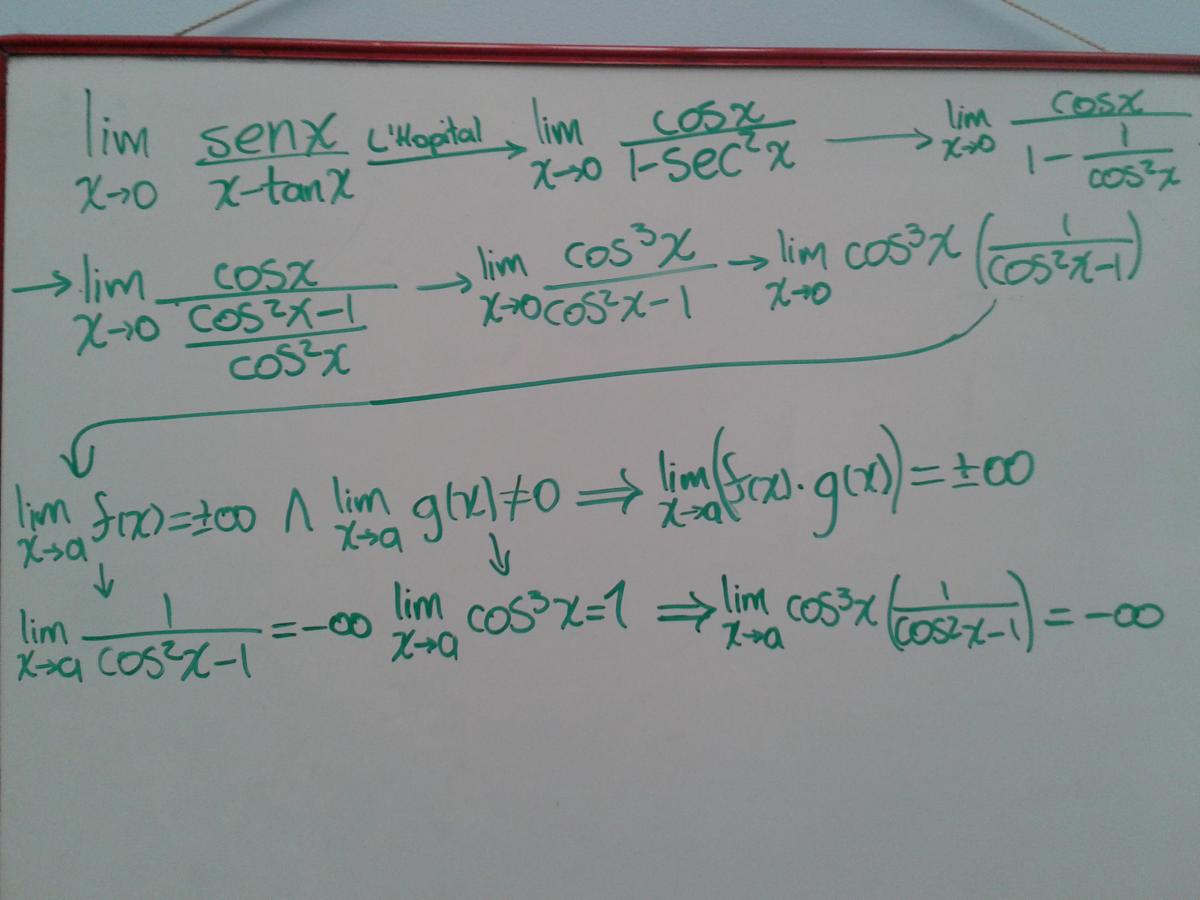 lim x→0 senx/x-tanx L'Hopital → lim x→0 cosx/1-sec²x → lim x→0 cosx/1-1/cos²x
→ lim x→0 cosx/cos²x-1/cos²x → lim x→0 cos³x/cos²x-1 → lim x→0 cos³x (1/cos²x-1)
lim x→a f(x)=±∞ ∧ lim x→a g(x)≠0 ⇒ lim x→a (f(x)·g(x))=±∞
lim x→a 1/cos²x-1 =-∞ lim x→a cos³x=1 ⇒ lim x→a cos³x (1/cos²x-1) = -∞